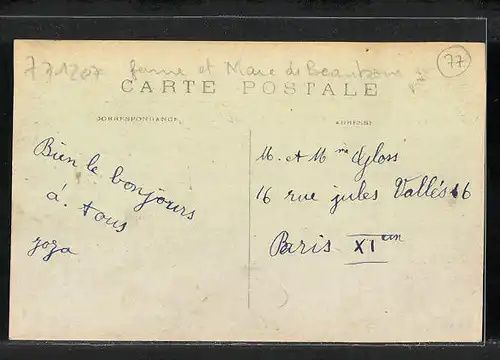 771207 ferme et Mare de 77
CARTE POSTALE
CORRESPONDANCE
ADRESSE
Bien le bonjours
à tous
zoza
M. et Mme Gloss
16 rue jules Vallés 16
Paris XIem